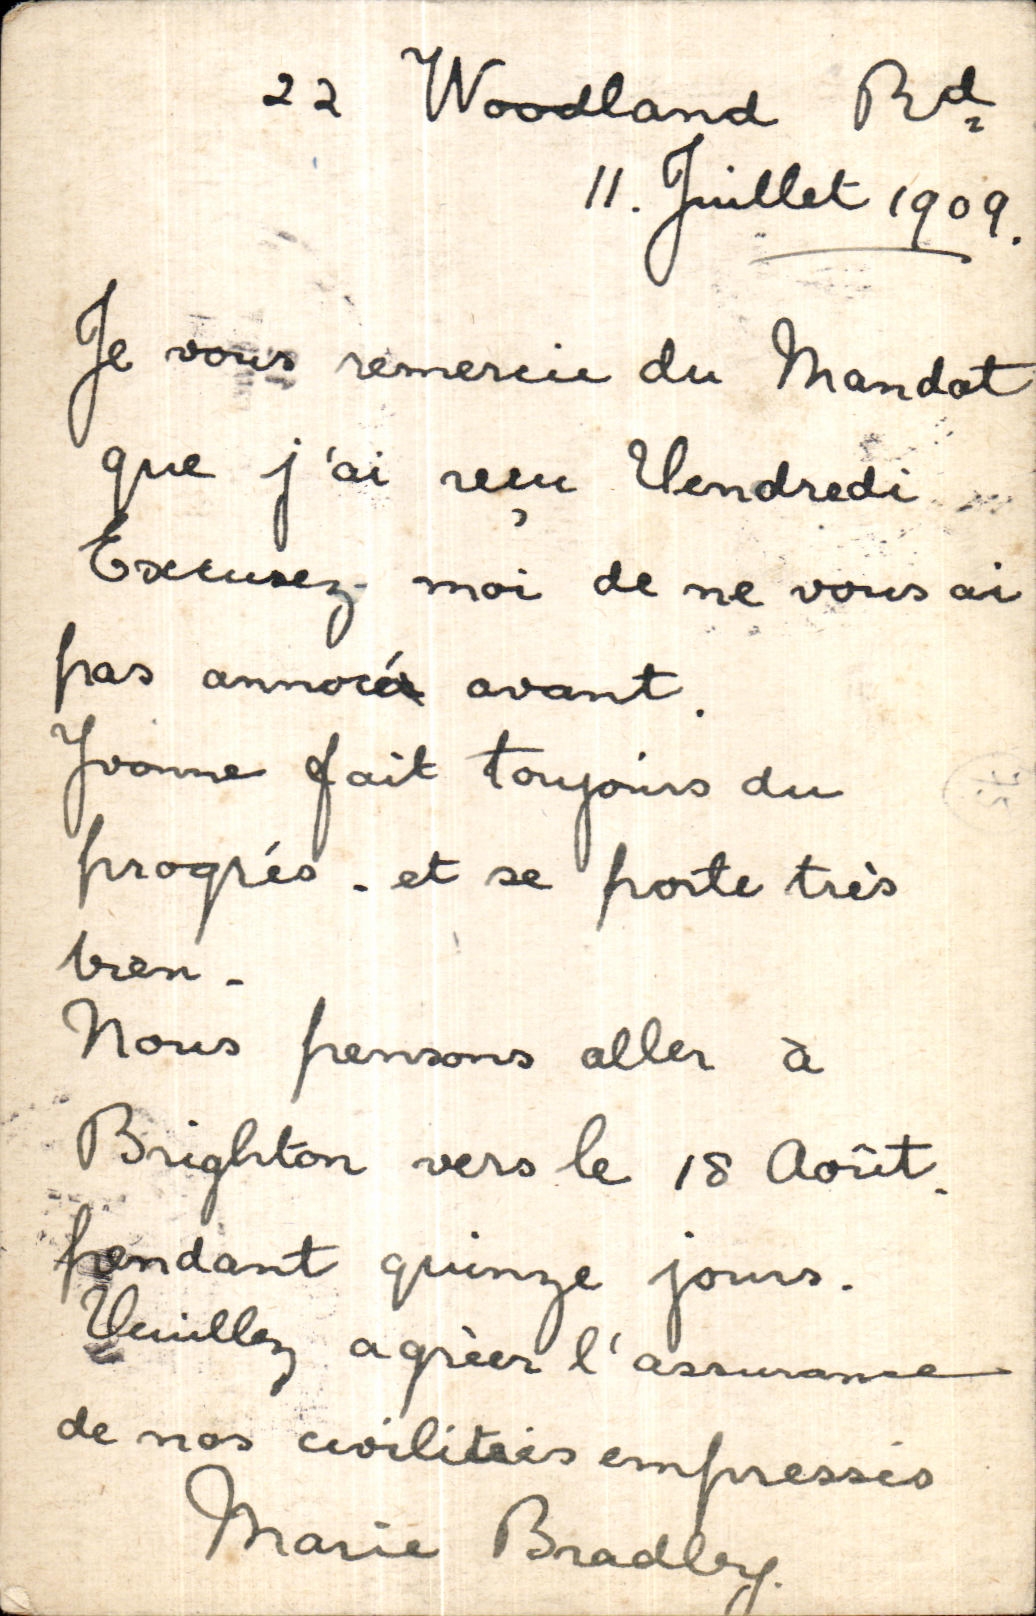 22 Woodland Rd
11. Juillet 1909.
Je vous remercie du Mandat
que j'ai reçu Vendredi
Excusez-moi de ne vous ai
pas annocé avant.
Yvonne fait toujours du
progrés. et se porte très
bien -
Nous pensons aller à
Brighton vers le 18 Août.
pendant quinze jours.
Veuillez agrèer l'assurance
de nos civilitéis empressés
Marie Bradley.